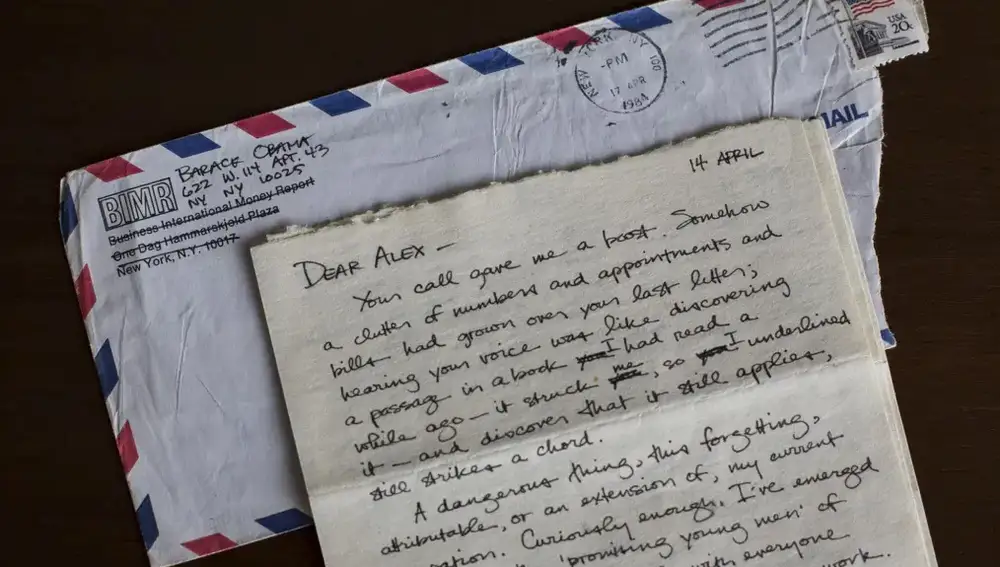 BARACK OBAMA
622 W. 114 APT. 43
NY NY 10025
BIMR
Business International Money Report
One Dag Hammarskjold Plaza
New York, N.Y. 10017
NEW YORK, NY 100
-PM
17 APR
1984
USA
20c
MAIL
14 APRIL
DEAR ALEX —
Your call gave me a boost. Somehow
a clutter of numbers and appointments and
bills had grown over your last letter;
hearing your voice was like discovering
a passage in a book you I had read a
while ago — it struck me, so you I underlined
it — and discover that it still applies,
still strikes a chord.
A dangerous thing, this forgetting,
attributable, or an extension of, my current
Curiously enough, I've emerged
'promising young men' of
with everyone
work.